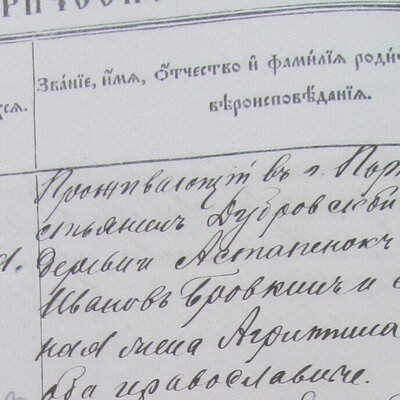 Зва́нїе, и҆́мя, ѻ҆́тчество и҆ фами́лїя роди
вѣроисповѣ́данїя.
Проживающій въ г. Пор
стьянинъ Дубровской
деревни
Ивановъ Бровкинъ и
ная жена Агриппина
оба православные.